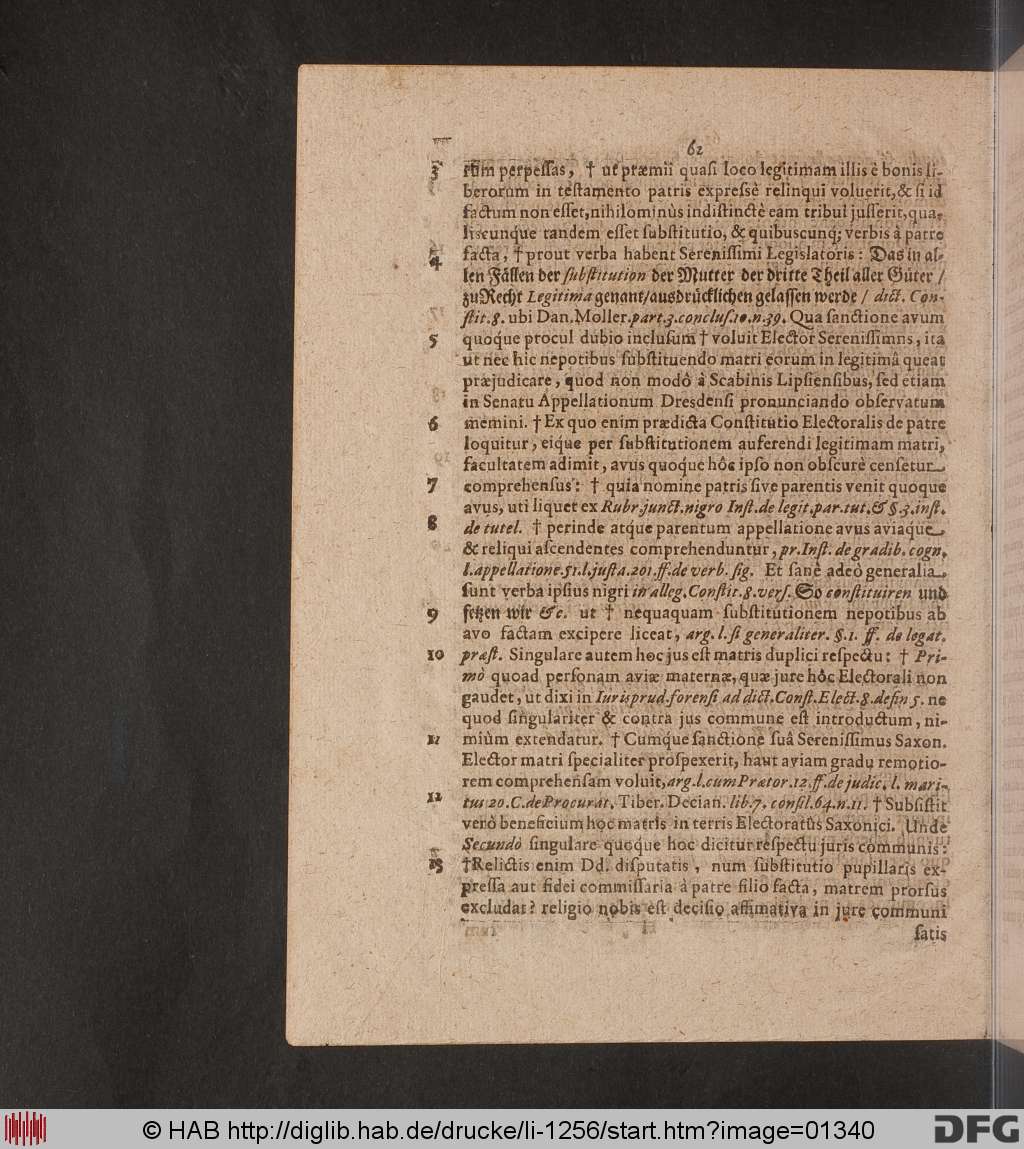 62
3 rûm perpeſſas, † ut præmii quaſi loco legitimam illis è bonis li-
berorum in teſtamento patris expreſsè relinqui voluerit, & ſi id
factum non eſſet, nihilominùs indiſtinctè eam tribui juſſerit, qua-
liscunque tandem eſſet ſubſtitutio, & quibuscunq; verbis à patre
4 facta, † prout verba habent Sereniſſimi Legislatoris: Das in al-
len Fällen der ſubſtitution der Mutter der dritte Theil aller Güter /
zu Recht Legitima genant/ausdrücklichen gelaſſen werde / dict. Con-
ſtit. 8. ubi Dan. Moller. part. 3. concluſ. 10. n. 39. Qua ſanctione avum
5 quoque procul dubio incluſum † voluit Elector Sereniſſimns, ita
ut nec hic nepotibus ſubſtituendo matri eorum in legitimâ queat
præjudicare, quod non modô à Scabinis Lipſienſibus, ſed etiam
in Senatu Appellationum Dresdenſi pronunciando obſervatum
6 memini. † Ex quo enim prædicta Conſtitutio Electoralis de patre
loquitur, eique per ſubſtitutionem auferendi legitimam matri,
facultatem adimit, avus quoque hôc ipſo non obſcurè cenſetur
7 comprehenſus: † quia nomine patris ſive parentis venit quoque
avus, uti liquet ex Rubr. junct. nigro Inſt. de legit. par. tut. & §. 3. inſt.
8 de tutel. † perinde atque parentum appellatione avus aviaque
& reliqui aſcendentes comprehenduntur, pr. Inſt. de gradib. cogn.
l. appellatione. 51. l. juſta. 201. ff. de verb. ſig. Et ſanè adeò generalia
ſunt verba ipſius nigri in alleg. Conſtit. 8. verſ. So conſtituiren und
9 ſetzen wir &c. ut † nequaquam ſubſtitutionem nepotibus ab
avo factam excipere liceat, arg. l. ſi generaliter. §. 1. ff. de legat.
10 præſt. Singulare autem hoc jus eſt matris duplici reſpectu: † Pri-
mò quoad perſonam aviæ maternæ, quæ jure hôc Electorali non
gaudet, ut dixi in Iurisprud. forenſi ad dict. Conſt. Elect. 8. defin 5. ne
quod ſingulariter & contra jus commune eſt introductum, ni-
11 miùm extendatur. † Cumque ſanctione ſuâ Sereniſſimus Saxon.
Elector matri ſpecialiter proſpexerit, haut aviam gradu remotio-
rem comprehenſam voluit, arg. l. cum Prætor. 12. ff. de judic. l. mari-
12 tus 20. C. de Procurat. Tiber. Decian. lib. 7. conſil. 64. n. 11. † Subſiſtit
verò beneficium hoc matris in terris Electoratûs Saxonici. Unde
Secundò ſingulare quoque hoc dicitur reſpectu juris communis:
13 † Relictis enim Dd. diſputatis, num ſubſtitutio pupillaris ex-
preſſa aut fidei commiſſaria à patre filio facta, matrem prorſus
excludat? religio nobis eſt deciſio affimativa in jure communi
ſatis
© HAB http://diglib.hab.de/drucke/li-1256/start.htm?image=01340
DFG